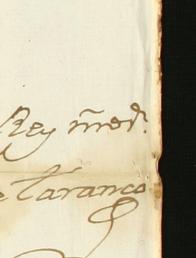 Rey ñrod.r
e Taranco